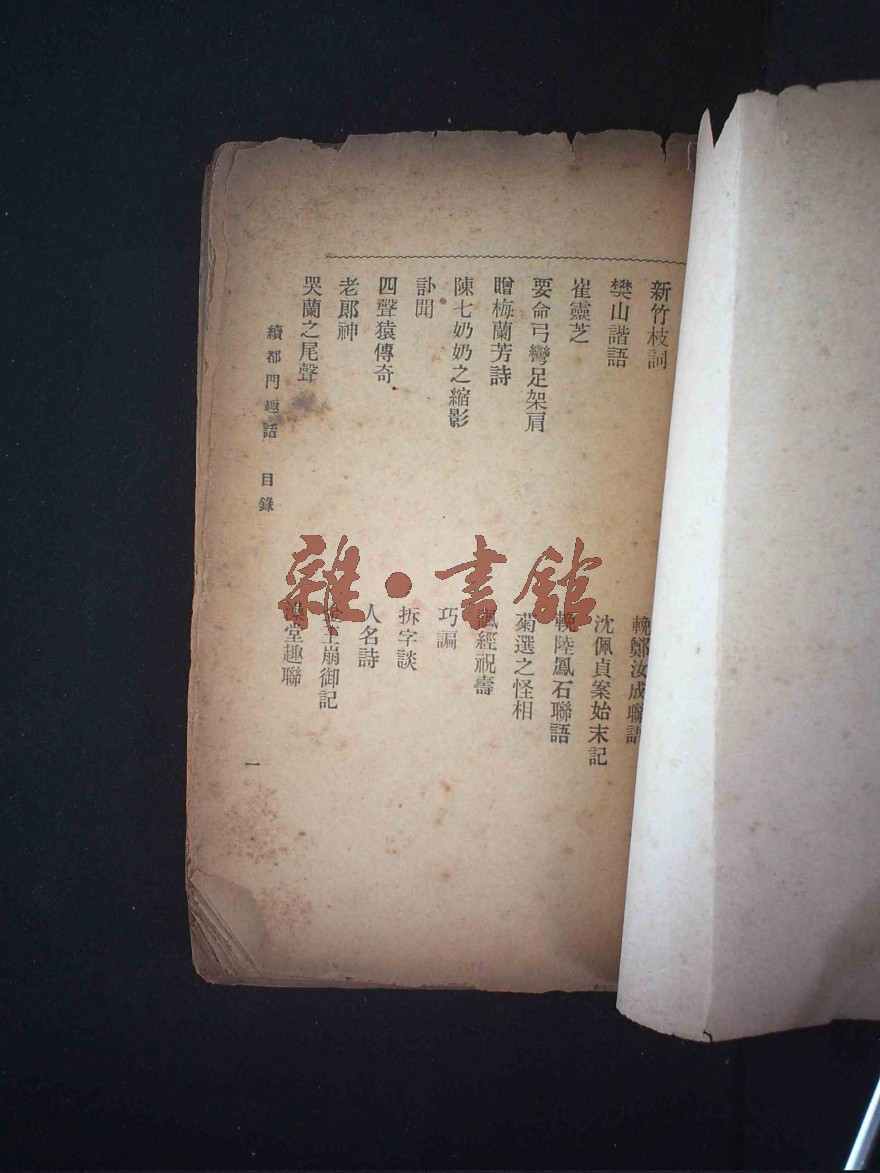 新竹枝詞
樊山諧語
崔靈芝
要命弓彎足架肩
贈梅蘭芳詩
陳七奶奶之縮影
訃聞
四聲猿傳奇
老郎神
哭蘭之尾聲
輓鄭汝成聯語
沈佩貞案始末記
輓陸鳳石聯語
菊選之怪相
諷經祝壽
巧諞
拆字談
人名詩
王崩御記
堂趣聯
續都門趣話 目錄
一
雜·書館